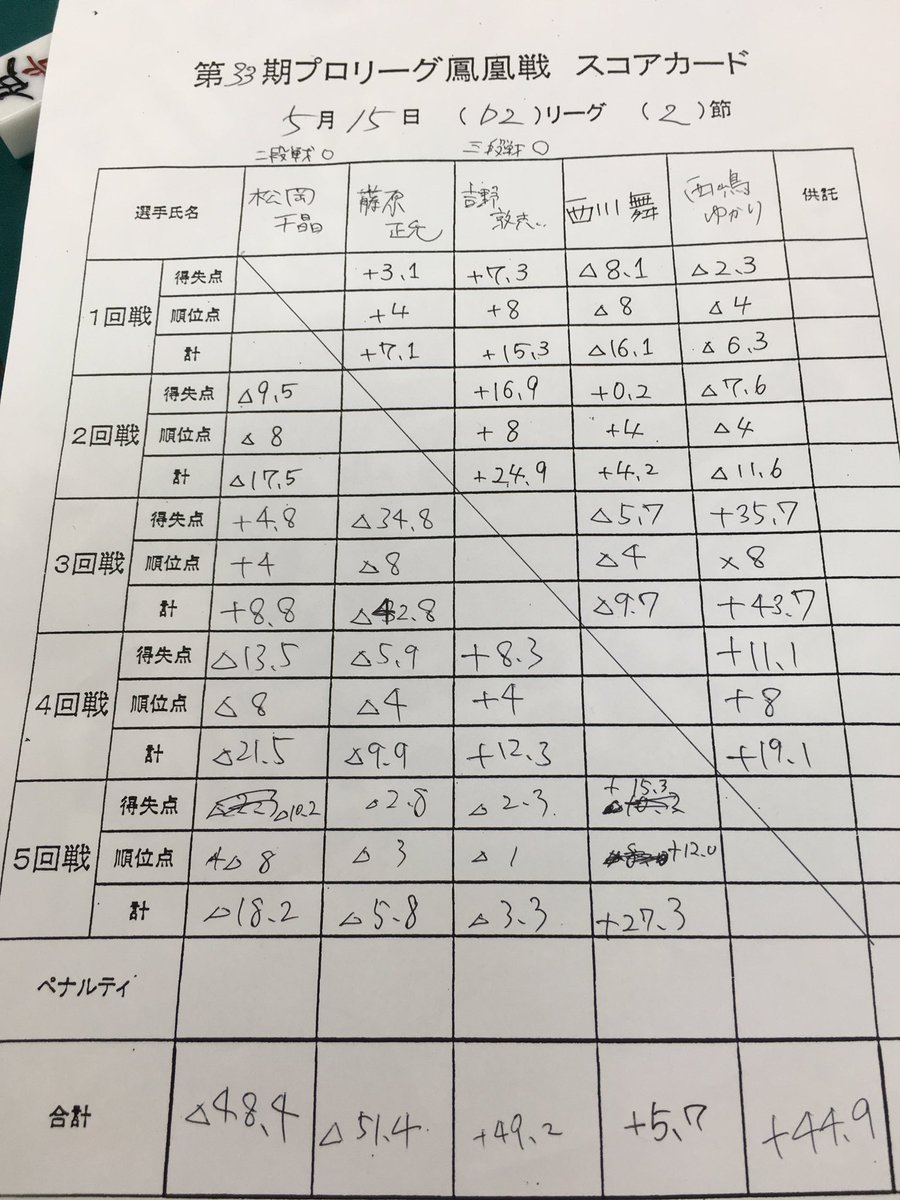 第33期プロリーグ鳳凰戦 スコアカード
5月15日 (D2)リーグ (2)節
二段戦〇 三段戦〇
選手氏名 松岡千晶 藤原 西川舞 西嶋ゆかり 供託
1回戦
得失点 +3.1 +7.3 △8.1 △2.3
順位点 +4 +8 △8 △4
計 +7.1 +15.3 △16.1 △6.3
2回戦
得失点 △9.5 +16.9 +0.2 △7.6
順位点 △8 +8 +4 △4
計 △17.5 +24.9 +4.2 △11.6
3回戦
得失点 +4.8 △34.8 △5.7 +35.7
順位点 +4 △8 △4 +8
計 +8.8 △42.8 △9.7 +43.7
4回戦
得失点 △13.5 △5.9 +8.3 +11.1
順位点 △8 △4 +4 +8
計 △21.5 △9.9 +12.3 +19.1
5回戦
得失点 △10.2 △2.8 △2.3 +15.3
順位点 △8 △3 △1 +12.0
計 △18.2 △5.8 △3.3 +27.3
ペナルティ
合計 △48.4 △51.4 +49.2 +5.7 +44.9